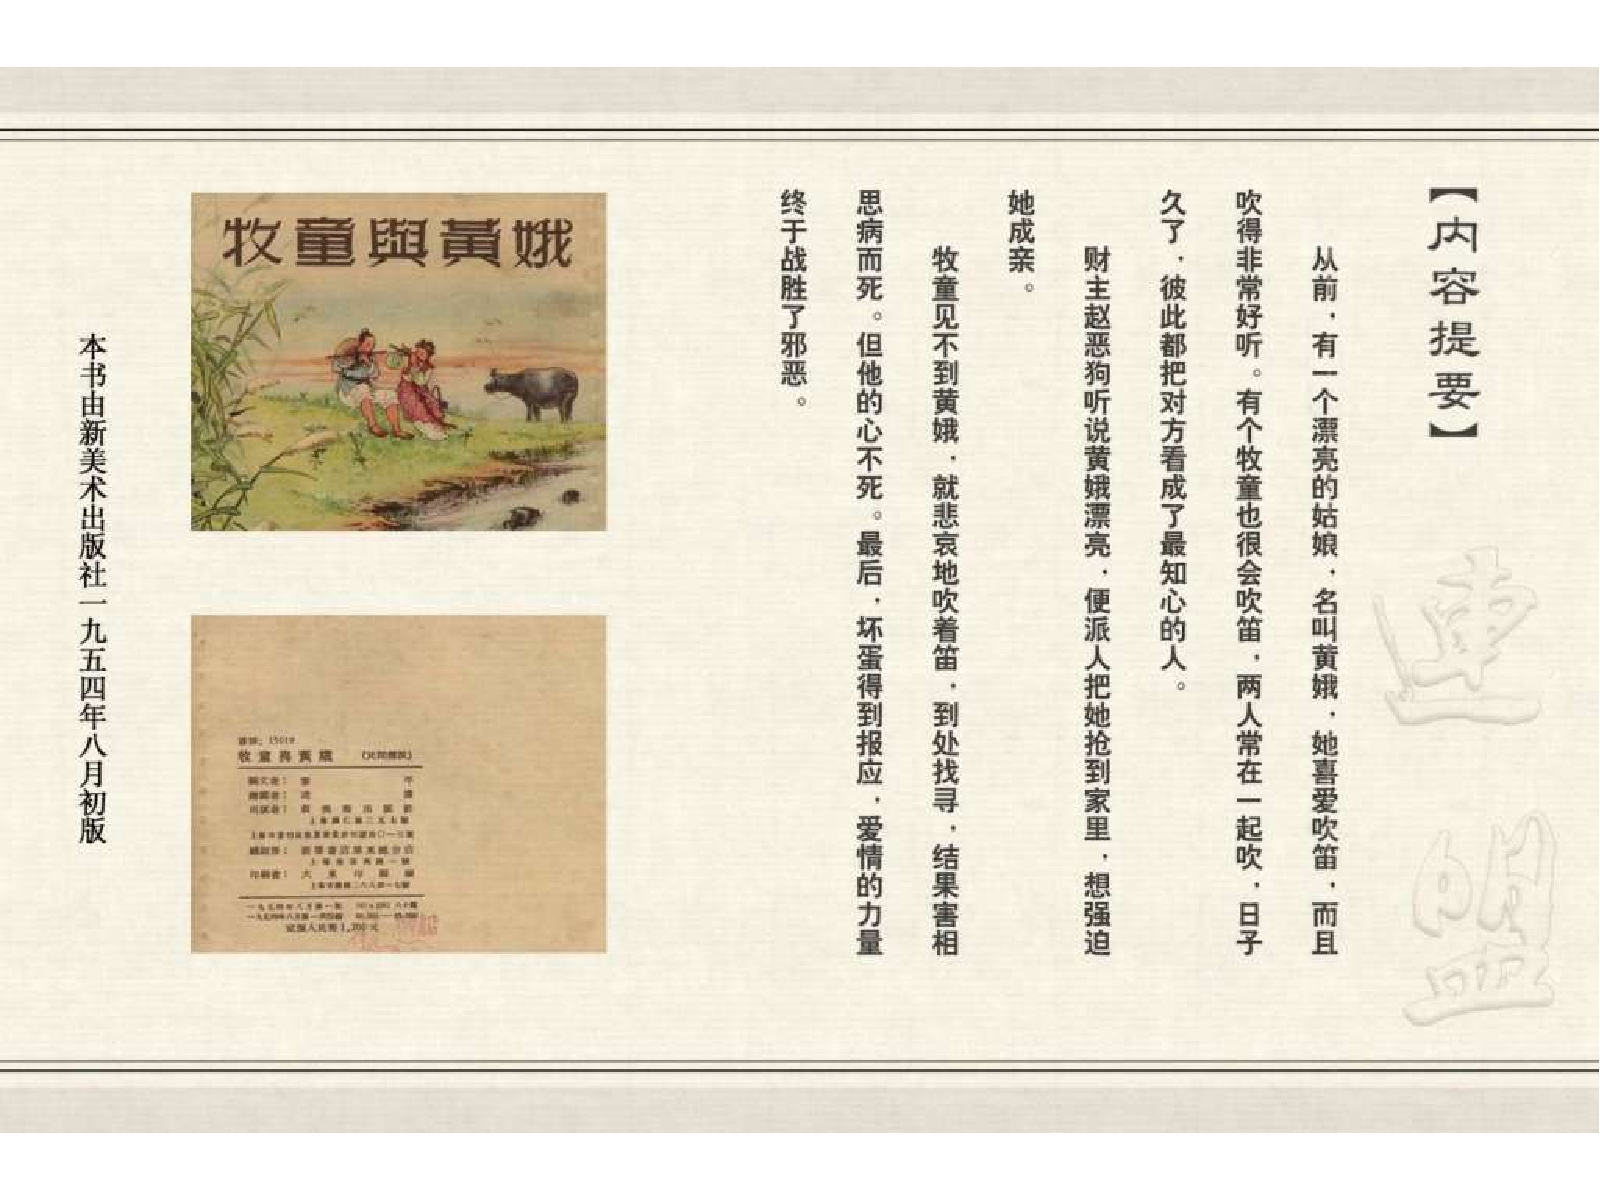 【内容提要】
从前，有一个漂亮的姑娘，名叫黄娥，她喜爱吹笛，而且
吹得非常好听。有个牧童也很会吹笛，两人常在一起吹，日子
久了，彼此都把对方看成了最知心的人。
财主赵恶狗听说黄娥漂亮，便派人把她抢到家里，想强迫
她成亲。
牧童见不到黄娥，就悲哀地吹着笛，到处找寻，结果害相
思病而死。但他的心不死。最后，坏蛋得到报应，爱情的力量
终于战胜了邪恶。
連盟
牧童與黃娥
牧童與黃娥
一九五四年八月第一版
定價人民幣1,700元
本书由新美术出版社一九五四年八月初版